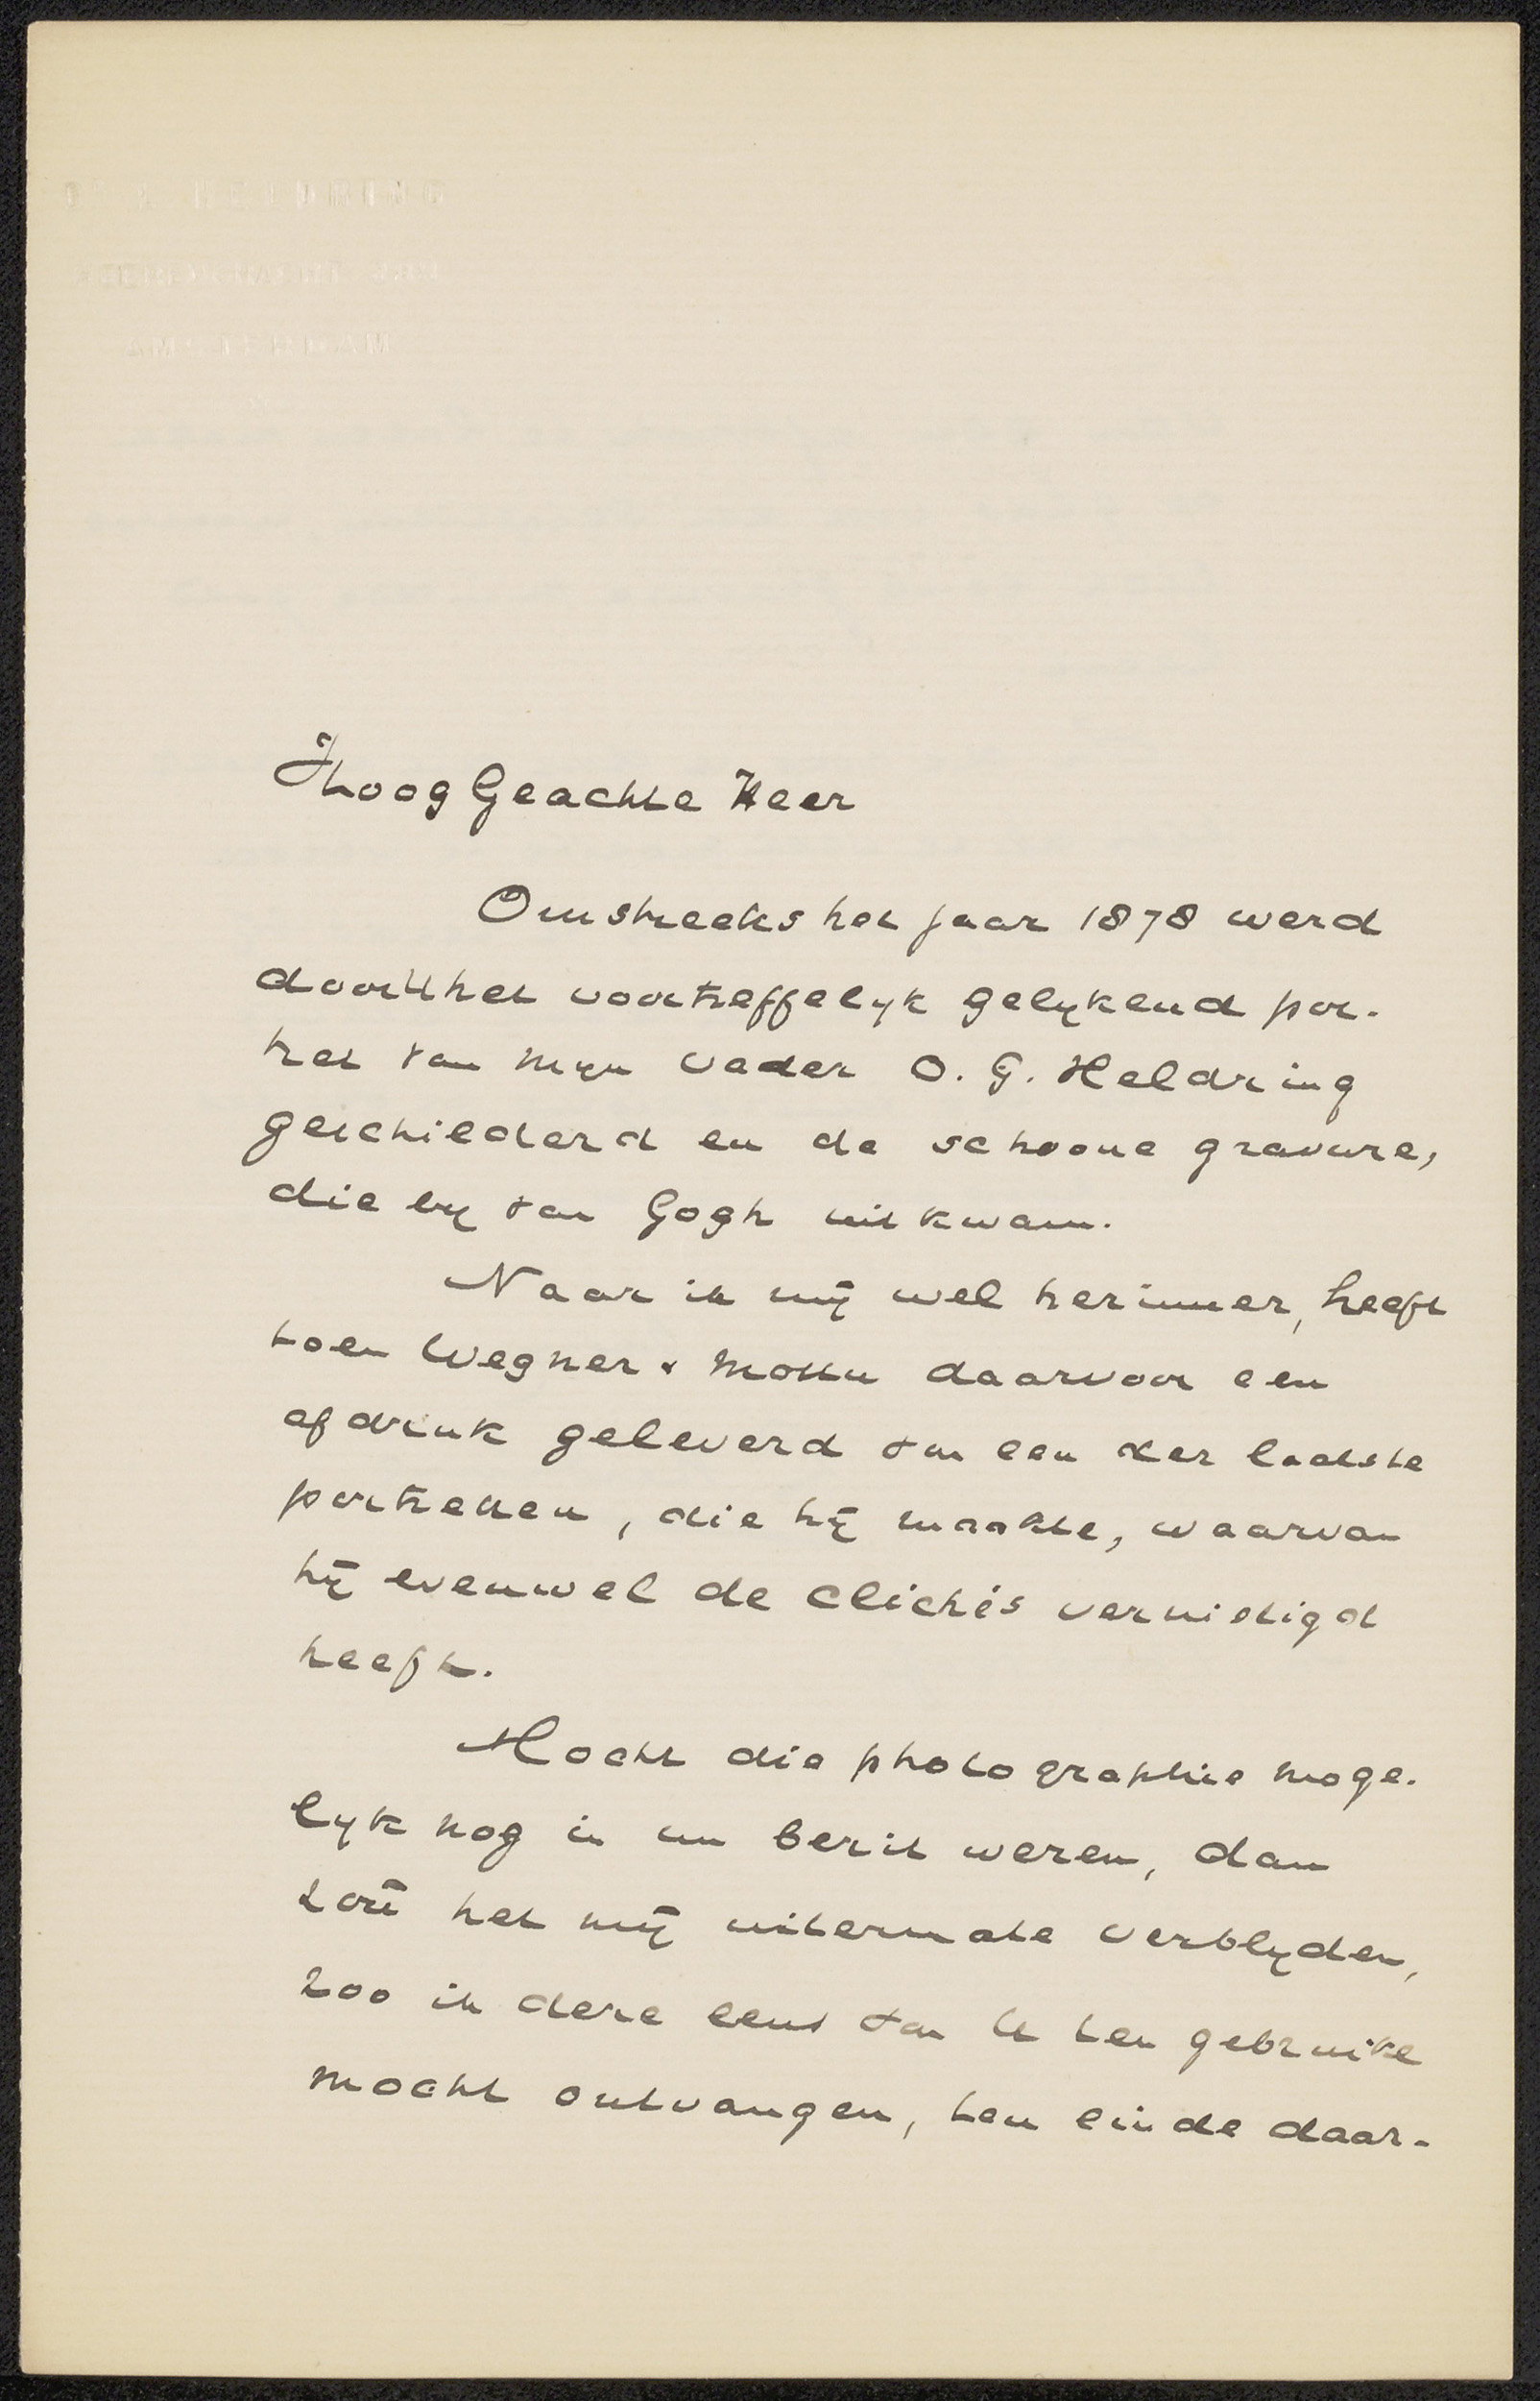 HELDRING
AMSTERDAM
Hoog Geachte Heer
Omstreeks het jaar 1878 werd
door U het voortreffelyk gelykend por-
tret van myn Vader O. G. Heldring
geschilderd en de schoone gravure,
die by van Gogh uitkwam.
Naar ik mij wel herinner, heeft
toen Wegner & Mottu daarvoor een
afdruk geleverd van een der laatste
portretten, die hij maakte, waarvan
hij evenwel de clichés vernietigd
heeft.
Mocht die photographie moge-
lyk nog in uw bezit wezen, dan
zou het mij uitermate verblyden,
zoo ik deze eens van U ten gebruike
mocht ontvangen, ten einde daar-